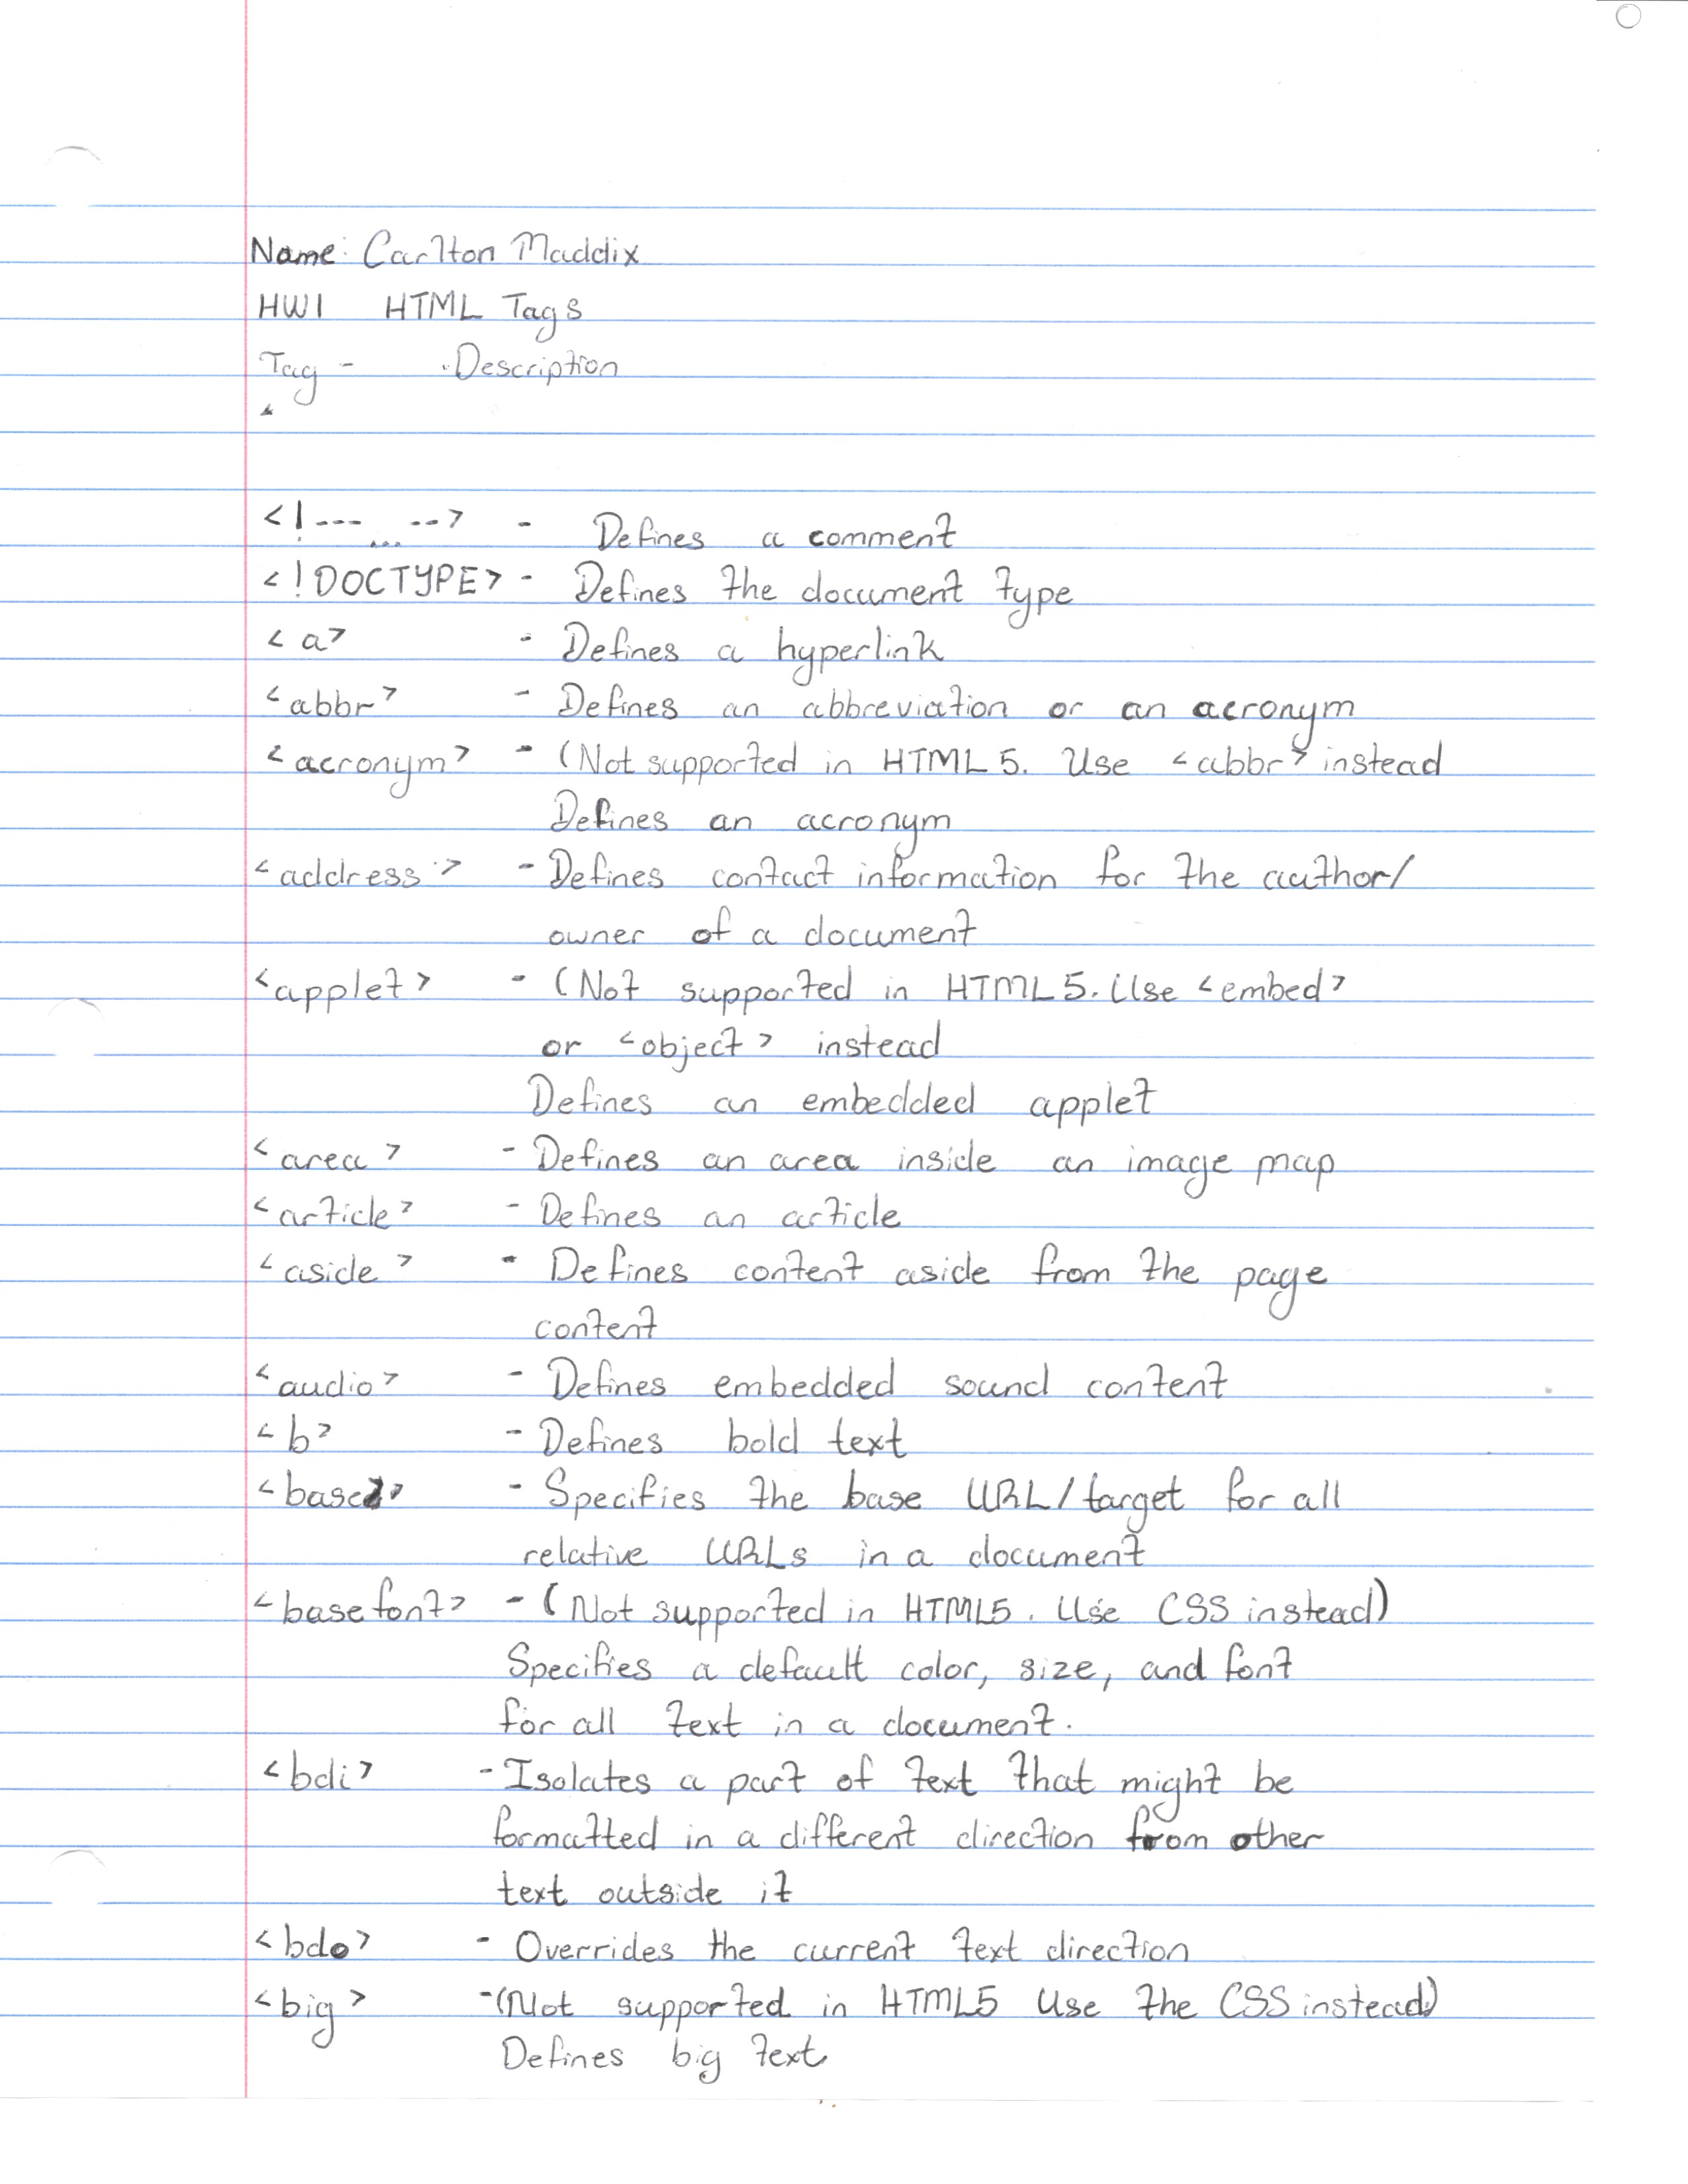 Name: Carlton Maddix
HW1 HTML Tags
Tag - Description
<!--- ... --> - Defines a comment
<!DOCTYPE> - Defines the document type
<a> - Defines a hyperlink
<abbr> - Defines an abbreviation or an acronym
<acronym> - (Not supported in HTML 5. Use <abbr> instead
Defines an acronym
<address> - Defines contact information for the author/
owner of a document
<applet> - (Not supported in HTML 5. Use <embed>
or <object> instead
Defines an embedded applet
<area> - Defines an area inside an image map
<article> - Defines an article
<aside> - Defines content aside from the page
content
<audio> - Defines embedded sound content
<b> - Defines bold text
<base> - Specifies the base URL/target for all
relative URLs in a document
<basefont> - (Not supported in HTML5. Use CSS instead)
Specifies a default color, size, and font
for all text in a document.
<bdi> - Isolates a part of text that might be
formatted in a different direction from other
text outside it
<bdo> - Overrides the current text direction
<big> - (Not supported in HTML5 Use the CSS instead)
Defines big text